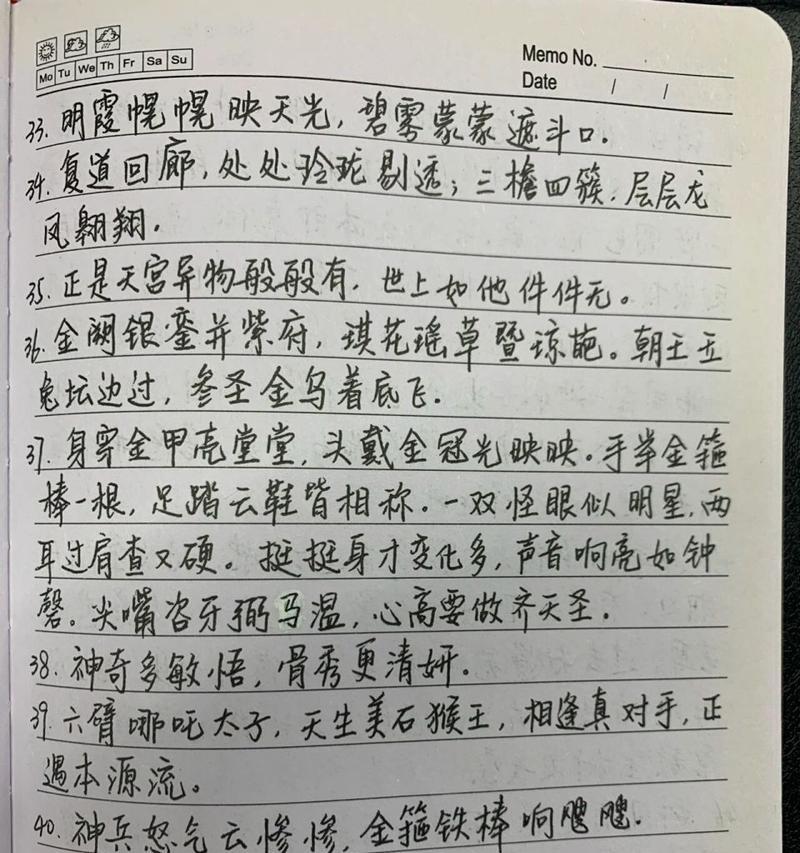 Mo Tu We Th Fr Sa Su
Memo No.
Date / /
33. 明霞幌幌映天光，碧雾蒙蒙遮斗口。
34. 复道回廊，处处玲珑剔透；三檐四簇，层层龙
凤翱翔。
35. 正是天宫异物般般有，世上如他件件无。
36. 金阙银銮并紫府，琪花瑶草暨琼葩。朝王玉
兔坛边过，参圣金乌着底飞。
37. 身穿金甲亮堂堂，头戴金冠光映映。手举金箍
棒一根，足踏云鞋皆相称。一双怪眼似明星，两
耳过肩查又硬。挺挺身才变化多，声音响亮如钟
磬。尖嘴咨牙弼马温，心高要做齐天圣。
38. 神奇多敏悟，骨秀更清妍。
39. 六臂哪吒太子，天生美石猴王，相逢真对手，正
遇本源流。
40. 神兵怒气云惨惨，金箍铁棒响飕飕。